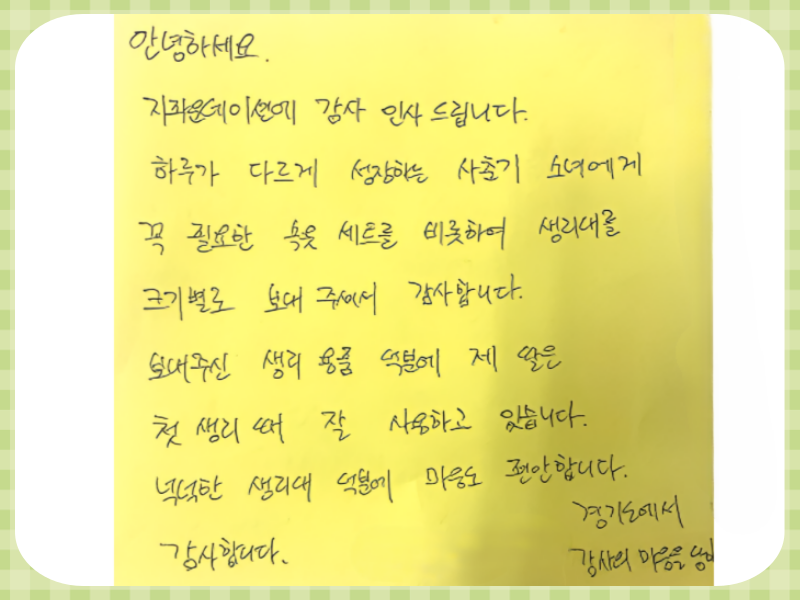 안녕하세요.
지파운데이션에 감사 인사 드립니다.
하루가 다르게 성장하는 사춘기 소녀에게
꼭 필요한 속옷 세트를 비롯하여 생리대를
크기별로 보내 주셔서 감사합니다.
보내주신 생리 용품 덕분에 제 딸은
첫 생리 때 잘 사용하고 있습니다.
넉넉한 생리대 덕분에 마음도 편안합니다.
경기도에서
감사합니다.
감사의 마음을